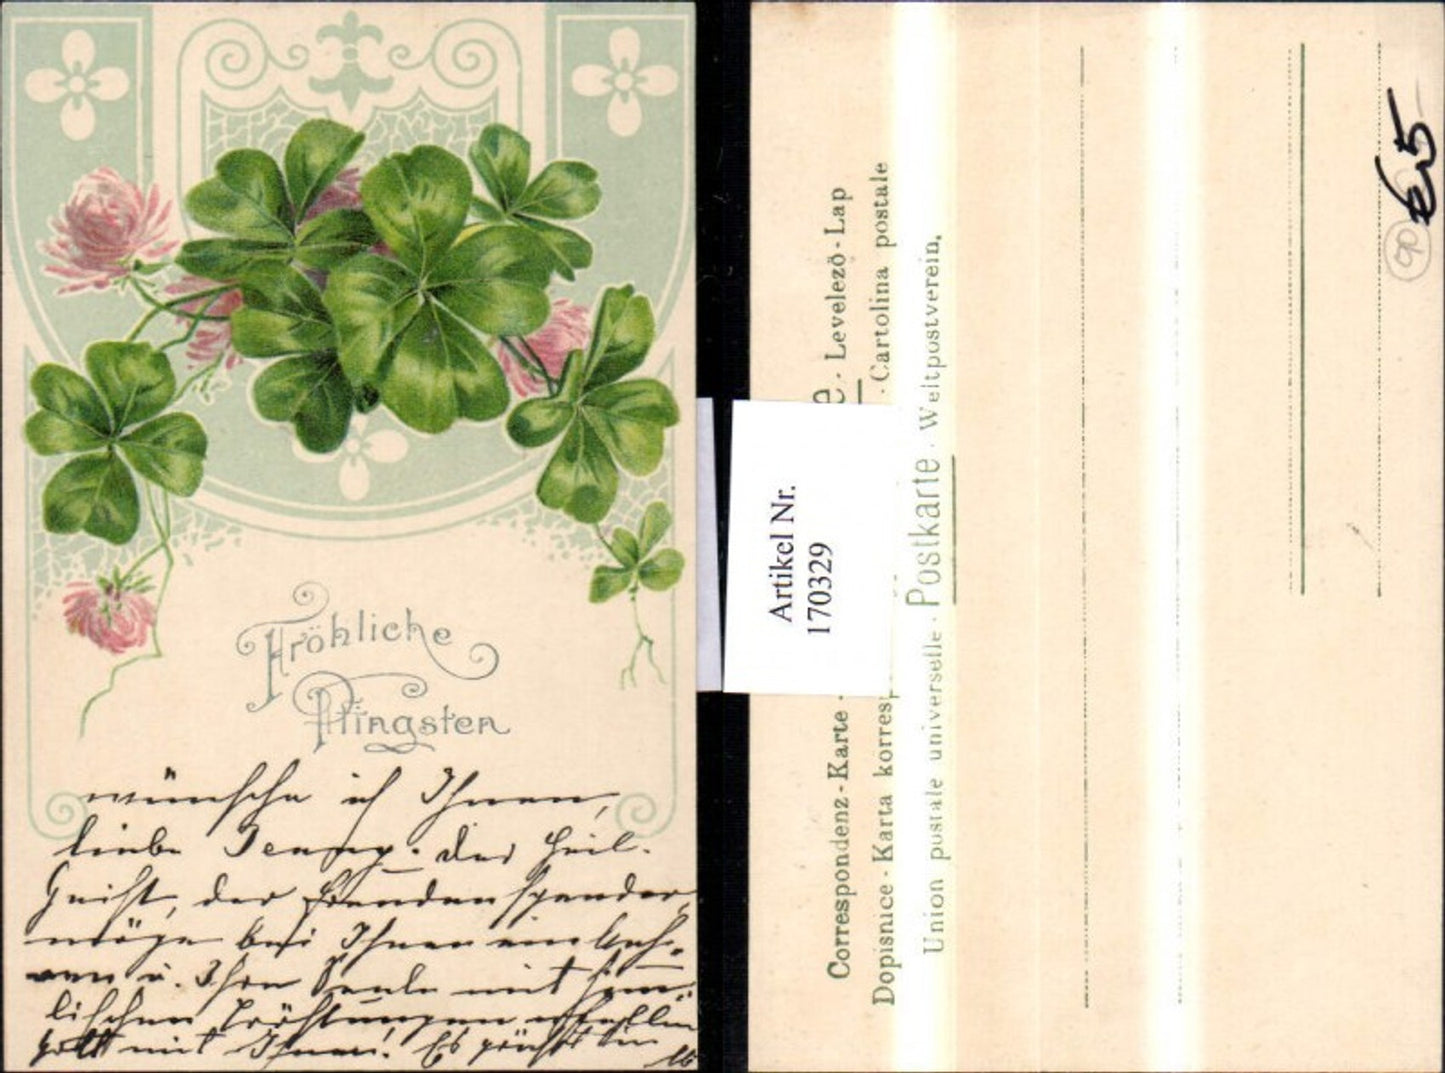 Fröhliche
Pfingsten
wünsche ich Ihnen,
liebe Jenny. Der Heil.
Geist, der Freudenspender,
möge bei Ihnen ein
u. Ihre Seele mit himm-
lischen Tröstungen erfüllen
Gott mit Ihnen! Es grüßt Sie
Artikel Nr.
170329
Correspondenz-Karte · e · Levelező-Lap
Dopisnice · Karta korresp · Cartolina postale
Union postale universelle · Postkarte · Weltpostverein.
€ 5
90